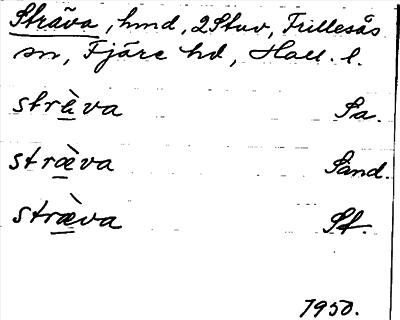 Sträva, hmd, 2 Stuv, Frillesås
sn, Fjäre hd, Hall. l.
strὲva Sa.
stræ̀va Sand.
stræ̀va St.
1950.